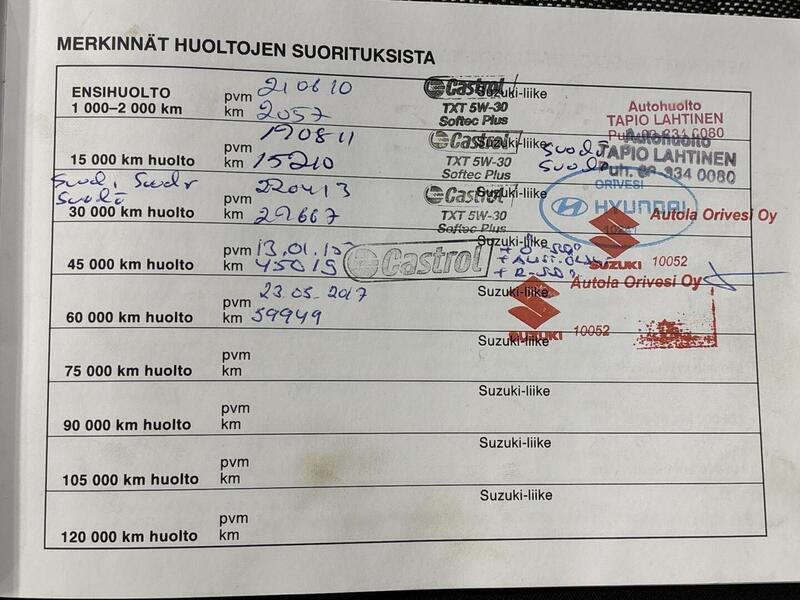 MERKINNÄT HUOLTOJEN SUORITUKSISTA
ENSIHUOLTO
1 000–2 000 km
pvm 210610
km 2057
Castrol
TXT 5W-30
Softec Plus
Suzuki-liike
Autohuolto
TAPIO LAHTINEN
15 000 km huolto
pvm 170811
km 15210
Castrol
TXT 5W-30
Softec Plus
Suzuki-liike
Autohuolto
TAPIO LAHTINEN
Puh. 03-334 0080
30 000 km huolto
pvm 220413
km 29667
Castrol
TXT 5W-30
Softec Plus
Suzuki-liike
ORIVESI
HYUNDAI
SUZUKI
Autola Orivesi Oy
10052
45 000 km huolto
pvm 13.01.15
km 45015
Castrol
Suzuki-liike
SUZUKI
Autola Orivesi Oy
10052
60 000 km huolto
pvm 23.05-2017
km 59949
Suzuki-liike
75 000 km huolto
pvm
km
Suzuki-liike
90 000 km huolto
pvm
km
Suzuki-liike
105 000 km huolto
pvm
km
Suzuki-liike
120 000 km huolto
pvm
km
Suzuki-liike